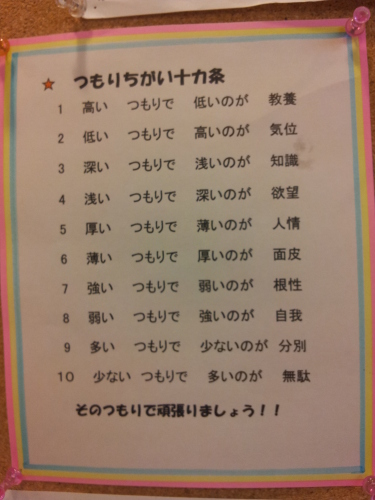 ★ つもりちがい十カ条
1 高い つもりで 低いのが 教養
2 低い つもりで 高いのが 気位
3 深い つもりで 浅いのが 知識
4 浅い つもりで 深いのが 欲望
5 厚い つもりで 薄いのが 人情
6 薄い つもりで 厚いのが 面皮
7 強い つもりで 弱いのが 根性
8 弱い つもりで 強いのが 自我
9 多い つもりで 少ないのが 分別
10 少ない つもりで 多いのが 無駄
そのつもりで頑張りましょう！！